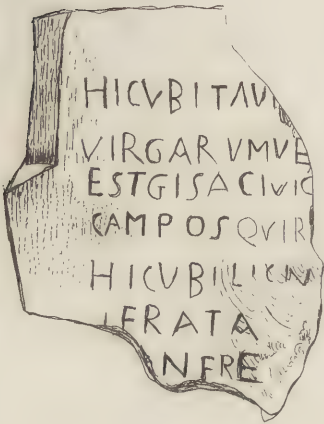 HICVBITAVI
VIRGARVMVE
ESTGISACIVIC
CAMPOSQVIR
HICVBI
IFRATA
NFRE